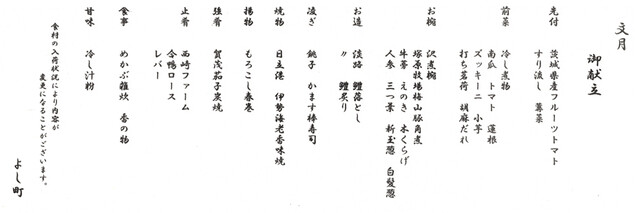 文月
御献立
先付
茨城県産フルーツトマト
すり流し 蓴菜
前菜
冷し煮物
南瓜 トマト 蓮根
ズッキーニ 小芋
打ち茗荷 胡麻だれ
お椀
沢煮椀
塚原牧場梅山豚角煮
牛蒡 えのき 木くらげ
人参 三つ葉 新玉葱 白髪葱
お造
淡路 鱧落とし
〃 鱧炙り
凌ぎ
銚子 かます棒寿司
焼物
日立港 伊勢海老香味焼
揚物
もろこし春巻
強肴
賀茂茄子炭焼
止肴
西崎ファーム
合鴨ロース
レバー
食事
めかぶ雑炊 香の物
甘味
冷し汁粉
食材の入荷状況により内容が
変更になることがございます。
よし町